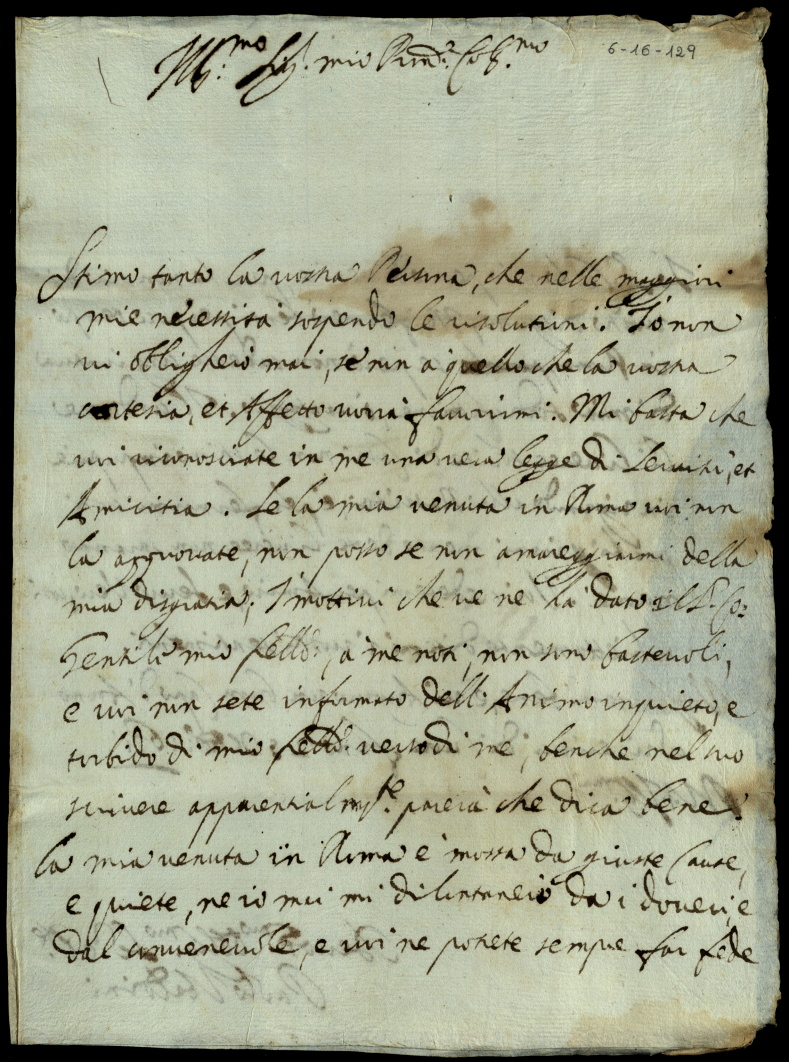 Ill:mo Sig:r mio Pron: Col:mo
6-16-129
Stimo tanto la vostra Persona, che nelle maggiori
mie necessità sospendo le risolutioni. Io non
vi obligherò mai, se non a quello che la vostra
cortesia, et Affetto vorrà favorirmi. Mi basta che
voi riconosciate in me una vera legge di Servitù, et
Amicitia. Se la mia venuta in Roma voi non
la approvate, non posso se non amareggiarmi della
mia disgratia; I mottivi che ve ne ha dato il S:r Co:
Gentile mio fello:, a me noti, non sono bastevoli,
e voi non sete informato dell'Animo inquieto, e
torbido di mio fello: verso di me, benche nel suo
scrivere apparentialm:te parerà che dica bene.
La mia venuta in Roma è mossa da giuste Cause,
e quiete, ne io mai mi dilontanerò da i doveri, e
dal convenevole, e voi ne potete sempre far fede